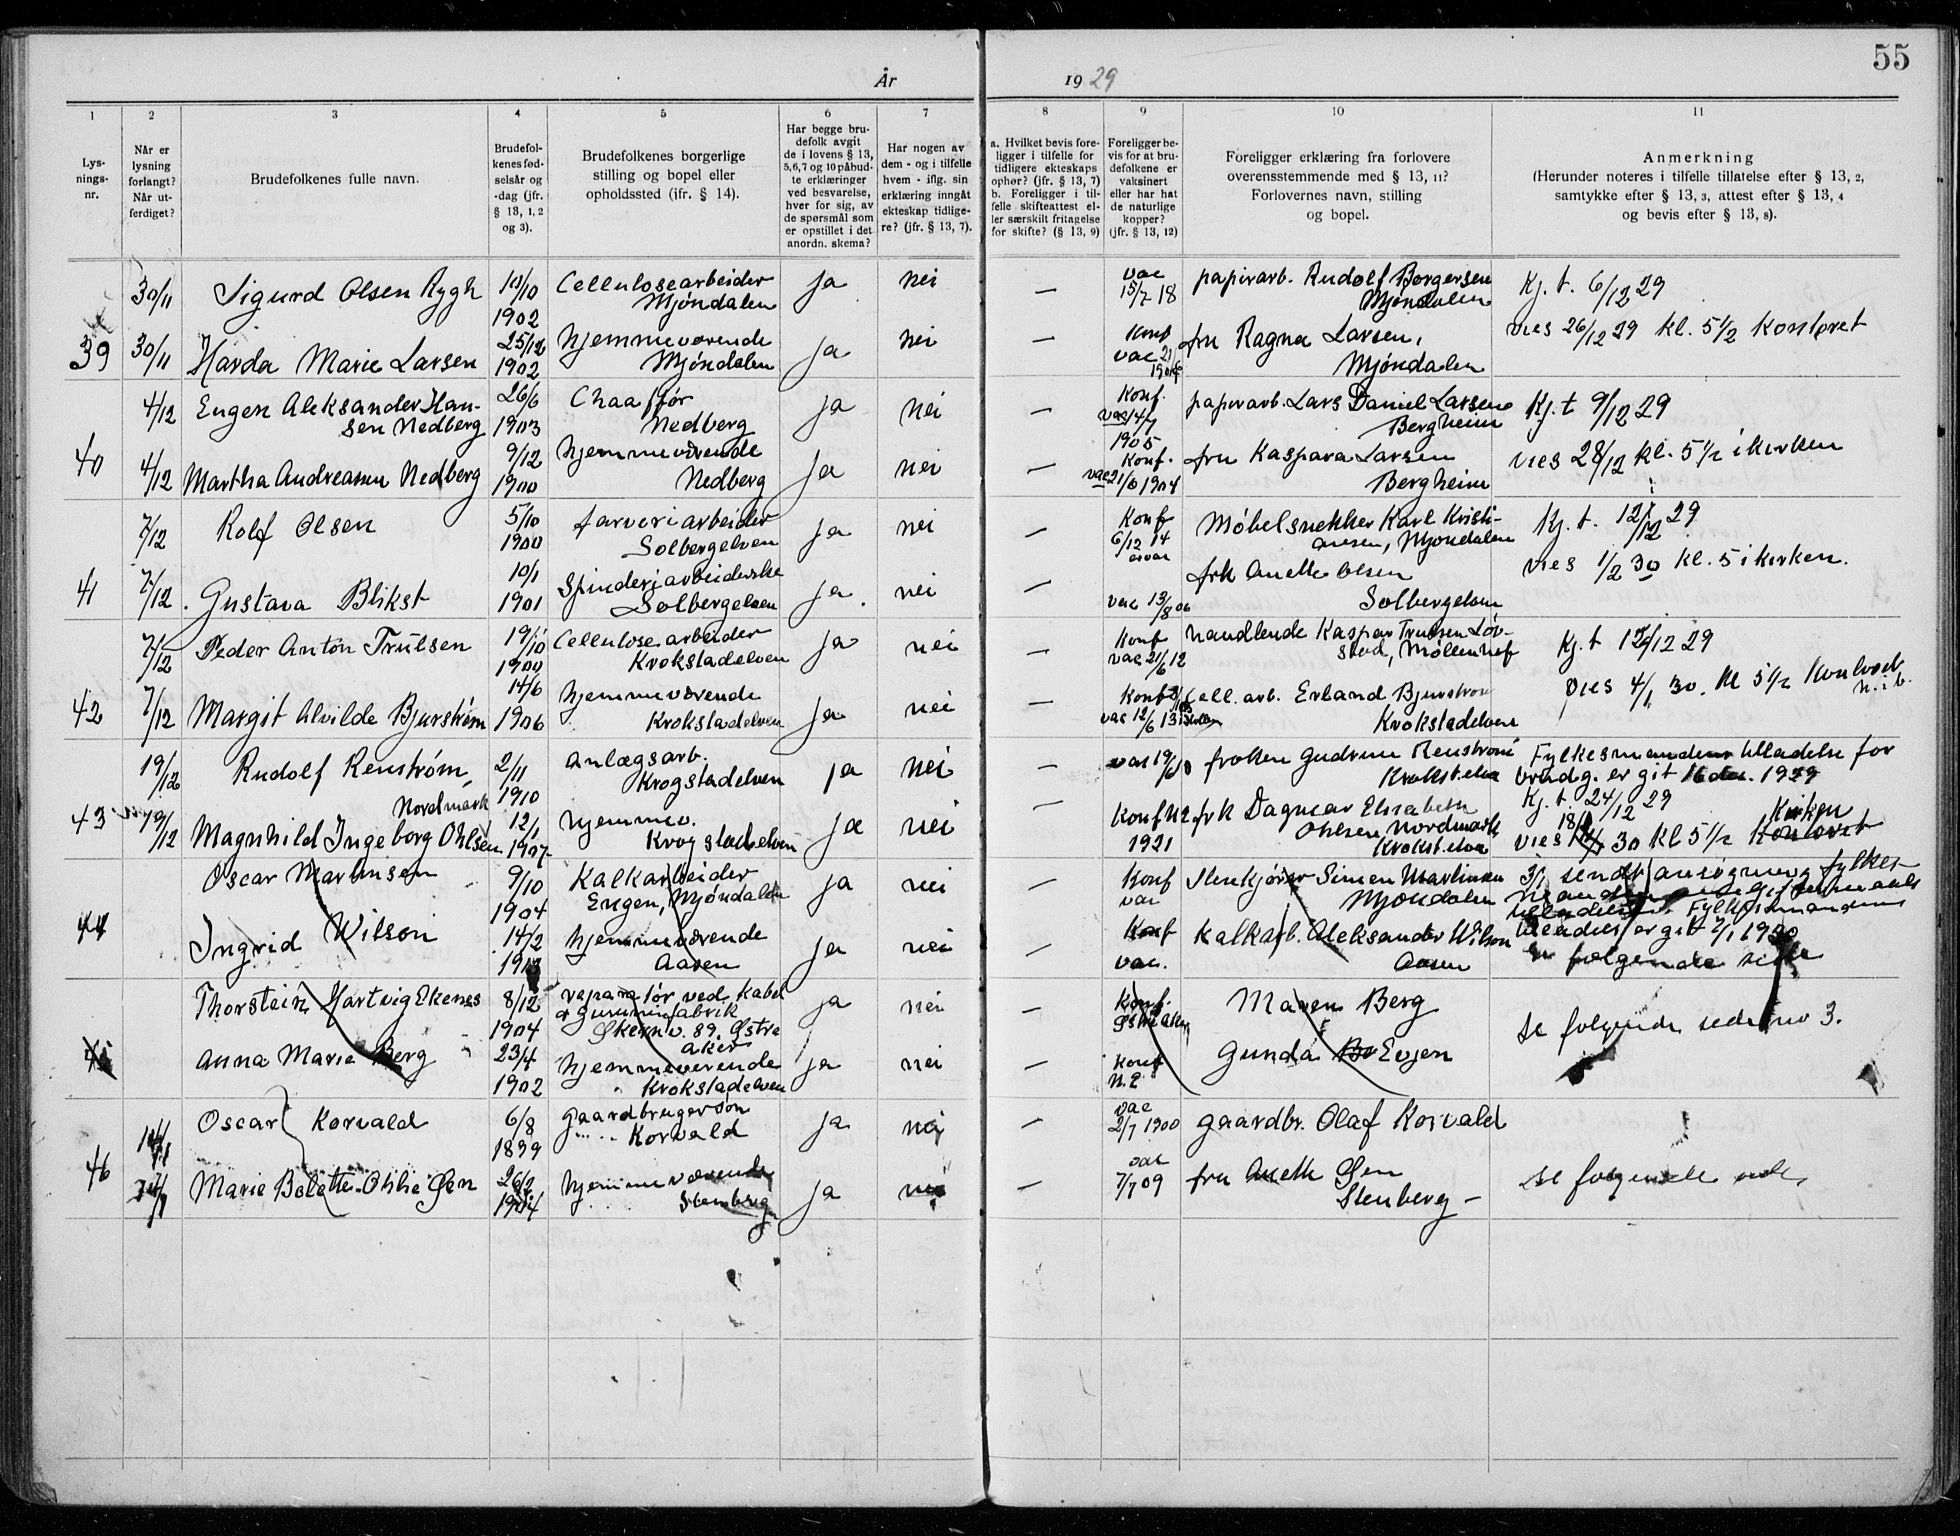 55
År 1929
1 2 3 4 5 6 7 8 9 10 11
Lys-
nings-
nr.
Når er
lysning
forlangt?
Når ut-
ferdiget?
Brudefolkenes fulle navn.
Brudefol-
kenes fød-
selsår og
-dag (jfr.
§ 13, 1, 2
og 3).
Brudefolkenes borgerlige
stilling og bopel eller
opholdssted (ifr. § 14).
Har begge bru-
defolk avgit
de i lovens § 13,
5,6,7 og 10 påbud-
te erklæringer
ved besvarelse,
hver for sig, av
de spørsmål som
er opstillet i det
anordn. skema?
Har nogen av
dem - og i tilfelle
hvem - iflg. sin
erklæring inngåt
ekteskap tidlige-
re? (jfr. § 13, 7).
a. Hvilket bevis fore-
ligger i tilfelle for
tidligere ekteskaps
ophør? (jfr. § 13, 7)
b. Foreligger i til-
felle skifteattest el-
ler særskilt fritagelse
for skifte? (§ 13, 9)
Foreligger be-
vis for at bru-
defolkene er
vaksinert
eller har hat
de naturlige
kopper?
(jfr. § 13, 12)
Foreligger erklæring fra forlovere
overensstemmende med § 13, 11?
Forlovernes navn, stilling
og bopel.
Anmerkning
(Herunder noteres i tilfelle tillatelse efter § 13, 2,
samtykke efter § 13, 3, attest efter § 13, 4
og bevis efter § 13, 8).
30/11 Sigurd Olsen Rygh 10/10 1902 Cellulosearbeider Mjøndalen ja nei — vac 15/7 18 papirarb. Rudolf Borgersen Mjøndalen Kj. t. 6/12 29
39 30/11 Harda Marie Larsen 25/12 1902 hjemmeværende Mjøndalen ja nei — Konf vac 21/ fru Ragna Larsen, Mjøndalen vies 26/12 29 kl. 5 1/2 Kontoret
4/12 Eugen Aleksander Han-
sen Nedberg 26/6 1903 Chaafför Nedberg ja nei — Konf. vac 14/7 1905 papirarb. Lars Daniel Larsen Bergheim Kj. t 9/12 29
40 4/12 Martha Andreassen Nedberg 9/12 1900 hjemmeværende Nedberg ja nei — Konf. vac 21/6 1904 fru Kaspara Larsen Bergheim vies 28/12 kl. 5 1/2 i kirken
7/12 Rolf Olsen 5/10 1900 farveriarbeider Solbergelven ja nei — Konf 6/12 14 Møbelsnekker Karl Kristi-
ansen, Mjøndalen Kj. t. 12/12 29
41 7/12 Gustava Blikst 10/1 1901 Spinderiarbeiderske Solbergelven ja nei — vac 13/8 06 frk Anette Olsen Solbergelven vies 1/2 30 kl. 5 i kirken.
7/12 Peder Anton Trulsen 19/10 1900 Cellulosearbeider Krokstadelven ja nei — Konf vac 21/6 12 handlende Kaspar Trulsen Løv-
stad, Kj. t 12/12 29
42 7/12 Margit Alvilde Bjurstrøm 14/6 1906 hjemmeværende Krokstadelven ja nei — Konf vac 12/6 13 Cell. arb. Erland Bjurstrøm Krokstadelven vies 4/1 30. kl 5 1/2 Kontoret
19/12 Rudolf Renstrøm, 2/11 1910 anlægsarb. Krogstadelven ja nei — vac 19/6 frøken Gudrun Renstrøm Krokst.elva Fylkesmandens tilladelse for
brudg. er git 16 des. 1929
Kj. t. 24/12 29
43 19/12 Nordmark
Magnhild Ingeborg Ohlsen 12/1 1907 hjemmev. Krogstadelven ja nei — Konf 1921 frk Dagmar Elisabeth Ohlsen Nordmark Krokst.elva vies 18/1 30 kl 5 1/2 Kirken Kontoret
Oscar Martinsen 9/10 1904 Kalkarbeider Engen, Mjøndalen ja nei — Konf vac Simen Martinsen Mjøndalen
44 Ingrid Wilson 14/2 hjemmeværende Aasen ja nei — Konf vac. Kalkarb. Aleksander Wilson Aasen Fylkesmandens
tilladelse er git 2/1 1930
følgende side
Thorstein Hartvig Ekenes 8/12 1904 reparatør ved Kabel
og gummifabrik
Økernv. 89. Østre
aker ja nei — Konf. Østre aker Maren Berg se følgende side no 3.
45 Anna Marie Berg 23/4 1902 hjemmeværende Krokstadelven ja nei Konf N.E Gunda Evjen
14/1 Oscar Korvald 6/8 1899 gaardbrugersøn Korvald ja nei — vac 2/7 1900 gaardbr. Olaf Korvald
46 Marie Bolette Øen 26/2 1904 hjemmeværende Stenberg ja nei — vac 7/7 09 fru Anette Øen Stenberg — se følgende side